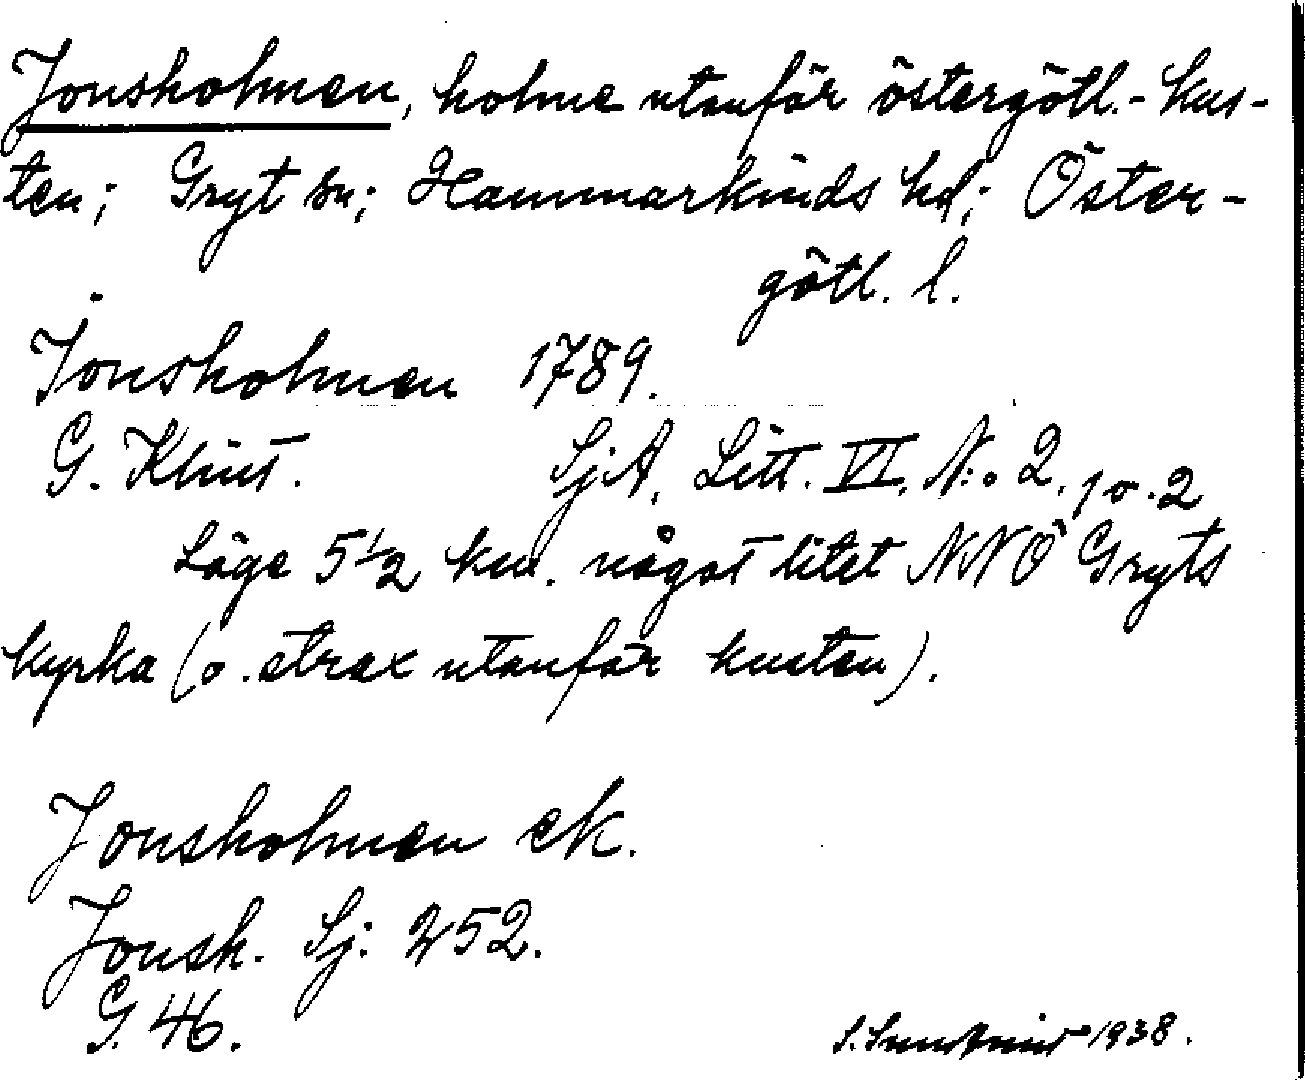 Jonsholmen, holme utanför östergötl.-kus-
ten; Gryt sn; Hammarkinds hd; Öster-
götl. l.
Jonsholmen 1789.
G. Klint. SjA, Litt. VI, N:o 2, 1 o. 2
Läge 5 1/2 km. något litet NNO Gryts
kyrka (o. strax utanför kusten).
Jonsholmen ek.
Jonsh. Sj: 252.
G. 46.
1938.